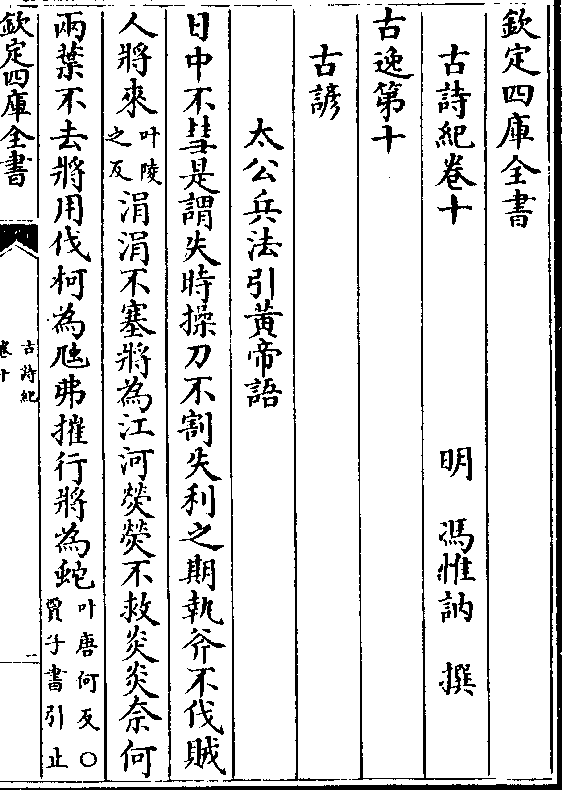 欽定四庫全書
古詩紀卷十
明 馮惟訥 撰
古逸第十
古諺
太公兵法引黄帝語
日中不彗是謂失時操刀不割失利之期執斧不伐賊
人將來叶陵之反涓涓不塞將為江河熒熒不救炎炎奈何
兩葉不去將用伐柯為虺弗摧行將為蛇叶唐何反〇賈子書引止
欽定四庫全書
古詩紀
卷十
一